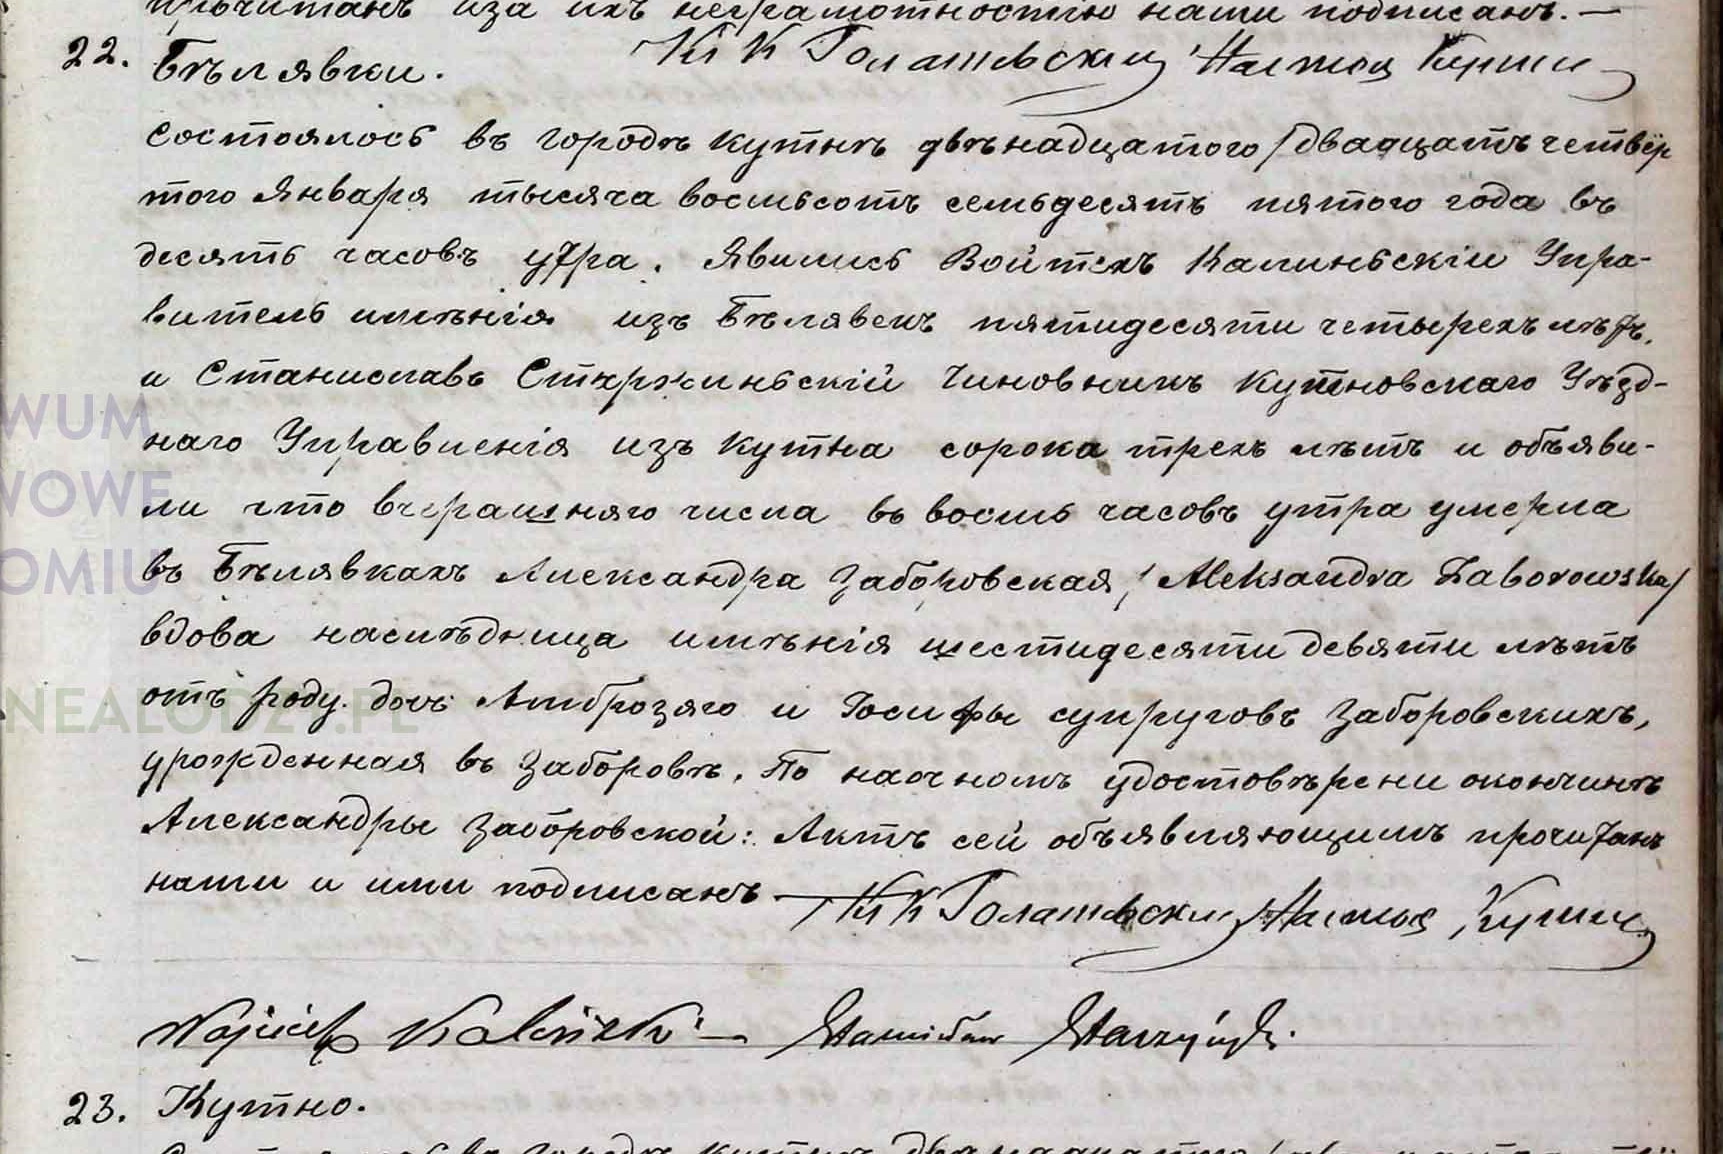 прочитанъ и за ихъ неграмотностію нами подписанъ. —
22. Бѣлявки. Кс К Голатовскій Настоя Кутни
Состоялось въ городѣ Кутнѣ двѣнадцатого /двадцать четвёр
того Января тысяча восмьсотъ семьдесятъ пятого года въ
десять часовъ утра. Явились Войтехъ Калиньскій Упра-
витель имѣнія изъ Бѣлявекъ пятидесяти четырехъ лѣтъ,
и Станиславъ Старжиньскій Чиновникъ Кутновскаго Уѣзд-
наго Управленія изъ Кутна сорока трехъ лѣтъ и объяви-
ли что вчерашняго числа въ восмь часовъ утра умерла
въ Бѣлявкахъ Александра Заборовская / Aleksandra Zaborowska/
вдова наслѣдница имѣнія шестидесяти девяти лѣтъ
отъ роду. дочь Амброзяго и Іосифы супруговъ Заборовскихъ,
урожденная въ Заборовѣ. По наочномъ удостовѣрени окончинѣ
Александры Заборовской: Актъ сей объявляющимъ прочитанъ
нами и ими подписанъ — Кс К Голатовскій Настоя Кутни
Wojciech Kaliński — Stanisław Starzyński.
23. Кутно.